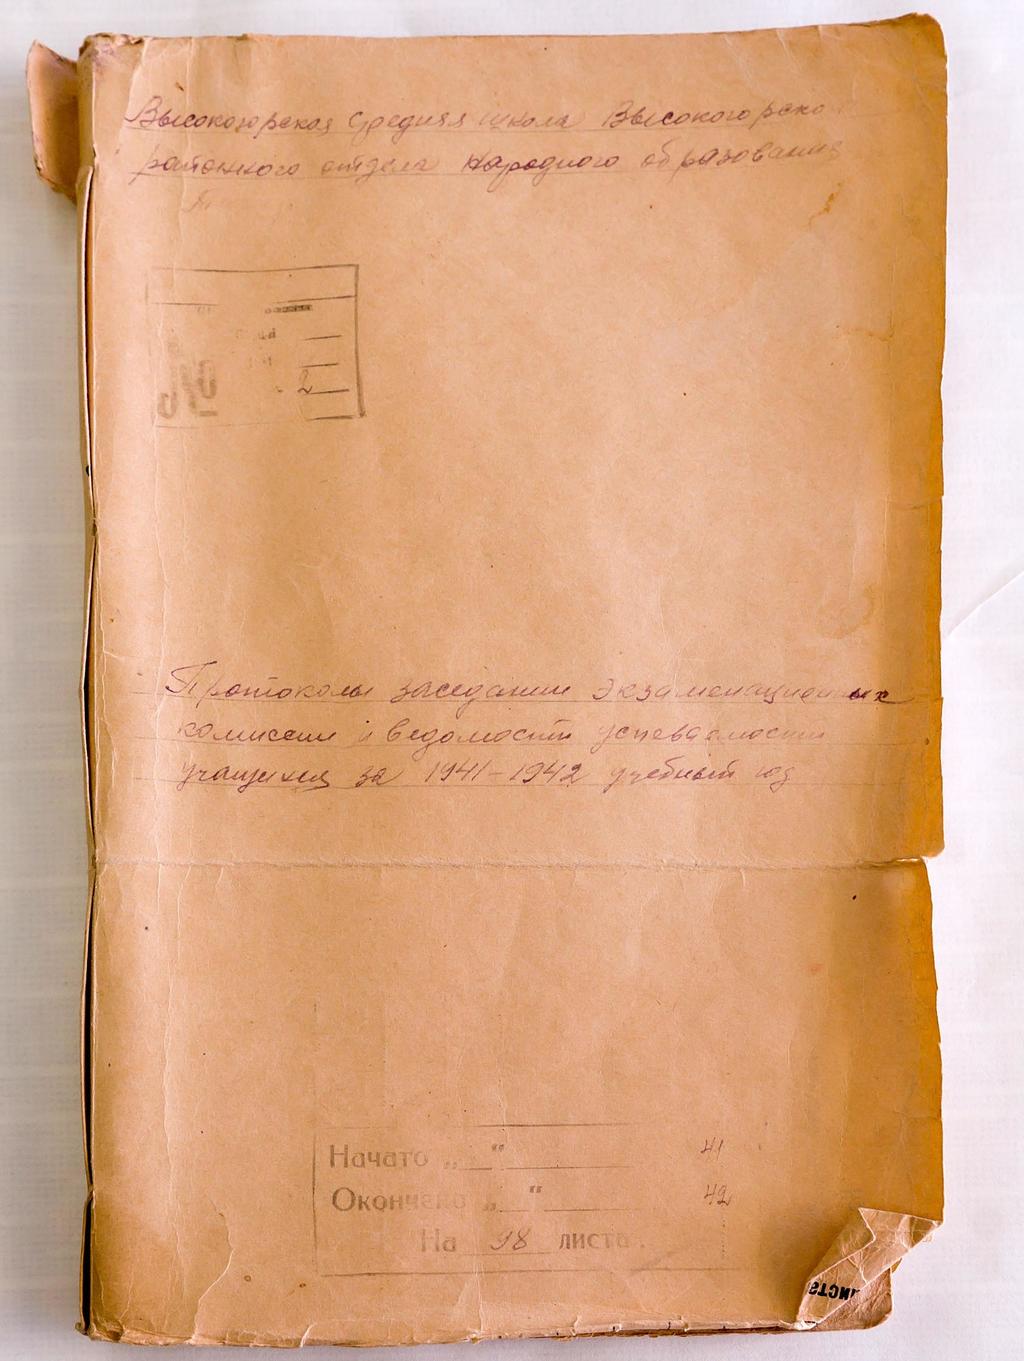 Высокогорская средняя школа Высокогорско
районного отдела народного образования
2
Протоколы заседании экзаменационных
комиссии и ведомости успеваемости
учащихся за 1941-1942 учебный год
Начато „ “ 41
Окончено „ “ 42
На 98 листа.
листа